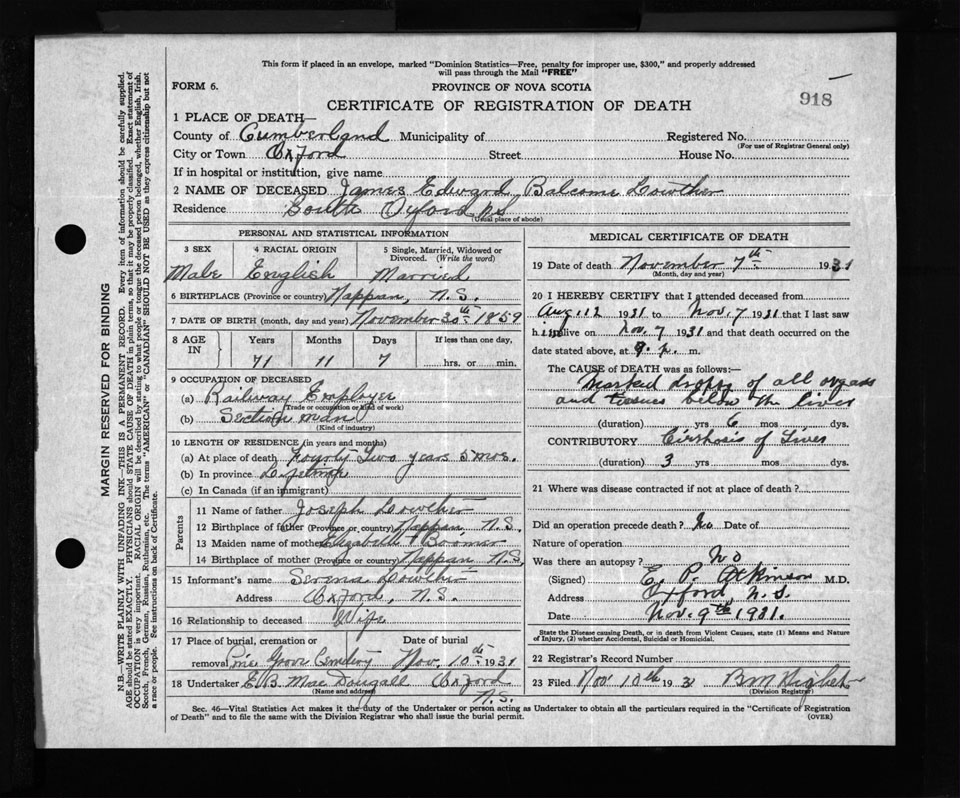 This form if placed in an envelope, marked "Dominion Statistics—Free, penalty for improper use, $300," and properly addressed
will pass through the Mail "FREE"
FORM 6.
PROVINCE OF NOVA SCOTIA
918
CERTIFICATE OF REGISTRATION OF DEATH
1 PLACE OF DEATH—
County of Cumberland Municipality of Registered No.
(For use of Registrar General only)
City or Town Oxford Street House No.
If in hospital or institution, give name
2 NAME OF DECEASED James Edward Balcome Lowther
Residence South Oxford N.S.
(Usual place of abode)
PERSONAL AND STATISTICAL INFORMATION
3 SEX 4 RACIAL ORIGIN 5 Single, Married, Widowed or
Divorced. (Write the word)
Male English Married
6 BIRTHPLACE (Province or country) Nappan, N.S.
7 DATE OF BIRTH (month, day and year) November 30th 1859
8 AGE IN Years Months Days If less than one day,
71 11 7 hrs. or min.
9 OCCUPATION OF DECEASED
(a) Railway Employee
(Trade or occupation or kind of work)
(b) Section man
(Kind of industry)
10 LENGTH OF RESIDENCE (in years and months)
(a) At place of death Fourty Two years 5 mos.
(b) In province Lifetime
(c) In Canada (if an immigrant)
Parents
11 Name of father Joseph Lowther
12 Birthplace of father (Province or country) Nappan N.S.
13 Maiden name of mother Elizabeth Boomer
14 Birthplace of mother (Province or country) Nappan N.S.
15 Informant's name Serena Lowther
Address Oxford, N.S.
16 Relationship to deceased Wife
17 Place of burial, cremation or Date of burial
removal Pine Grove Cemetery Nov. 10th 1931
18 Undertaker E.B. MacDougall Oxford
N.S.
(Name and address)
MEDICAL CERTIFICATE OF DEATH
19 Date of death November 7th 1931
(Month, day and year)
20 I HEREBY CERTIFY that I attended deceased from
Aug. 12 1931 to Nov. 7 1931 that I last saw
him alive on Nov. 7 1931 and that death occurred on the
date stated above, at 9. p. m.
The CAUSE of DEATH was as follows:—
Marked dropsy of all organs
and tissues below the liver
(duration) yrs 6 mos dys.
CONTRIBUTORY Cirrhosis of Liver
(duration) 3 yrs mos dys.
21 Where was disease contracted if not at place of death?
Did an operation precede death? No Date of
Nature of operation
Was there an autopsy? No
(Signed) E. P. Atkinson M.D.
Address Oxford, N.S.
Date Nov. 9th 1931.
State the Disease causing Death, or in death from Violent Causes, state (1) Means and Nature
of Injury, (2) whether Accidental, Suicidal or Homicidal.
22 Registrar's Record Number
23 Filed Nov 10th 1931
(Division Registrar)
Sec. 46—Vital Statistics Act makes it the duty of the Undertaker or person acting as Undertaker to obtain all the particulars required in the "Certificate of Registration
of Death" and to file the same with the Division Registrar who shall issue the burial permit.
(OVER)
MARGIN RESERVED FOR BINDING
N.B.—WRITE PLAINLY WITH UNFADING INK—THIS IS A PERMANENT RECORD. Every item of information should be carefully supplied.
AGE should be stated EXACTLY. PHYSICIANS should STATE CAUSE OF DEATH in plain terms, so that it may be properly classified. Exact statement of
OCCUPATION is very important. RACIAL ORIGIN will be described by stating to what people or tongue the deceased person belonged, whether English, Irish,
Scotch, French, German, Russian, Ruthenian, etc. The terms "AMERICAN" or "CANADIAN" SHOULD NOT BE USED as they express citizenship but not
a race or people. See instructions on back of Certificate.